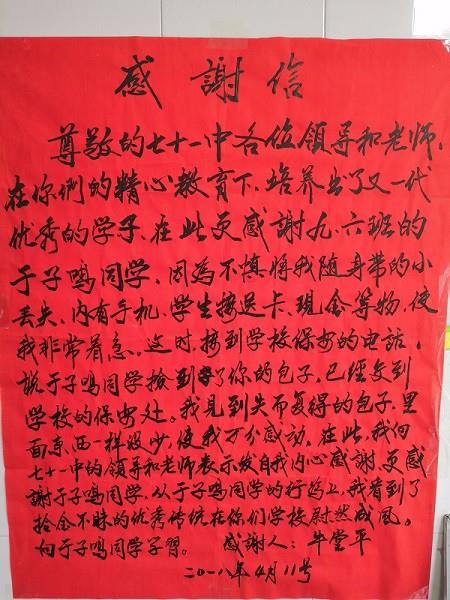 感謝信
尊敬的七十一中各位領导和老师,
在你們的精心教育下,培养出了又一代
优秀的学子,在此更感謝九.六班的
于子鸣同学,因為不慎將我随身带的小
丢失、内有手机、学生接送卡、现金等物,使
我非常着急。这时,接到学校保安的电話,
説于子鸣同学撿到了你的包子,已經交到
学校的保安处。我見到失而复得的包子,里
面東西一样没少,使我万分感动,在此,我向
七十一中的領导和老师表示发自我内心感謝,更感
謝于子鸣同学,从于子鸣同学的行為上,我看到了
拾金不昧的优秀傳统在你们学校尉然成風。
向于子鸣同学学習。 感謝人:牛堂平
二〇一八年4月11号